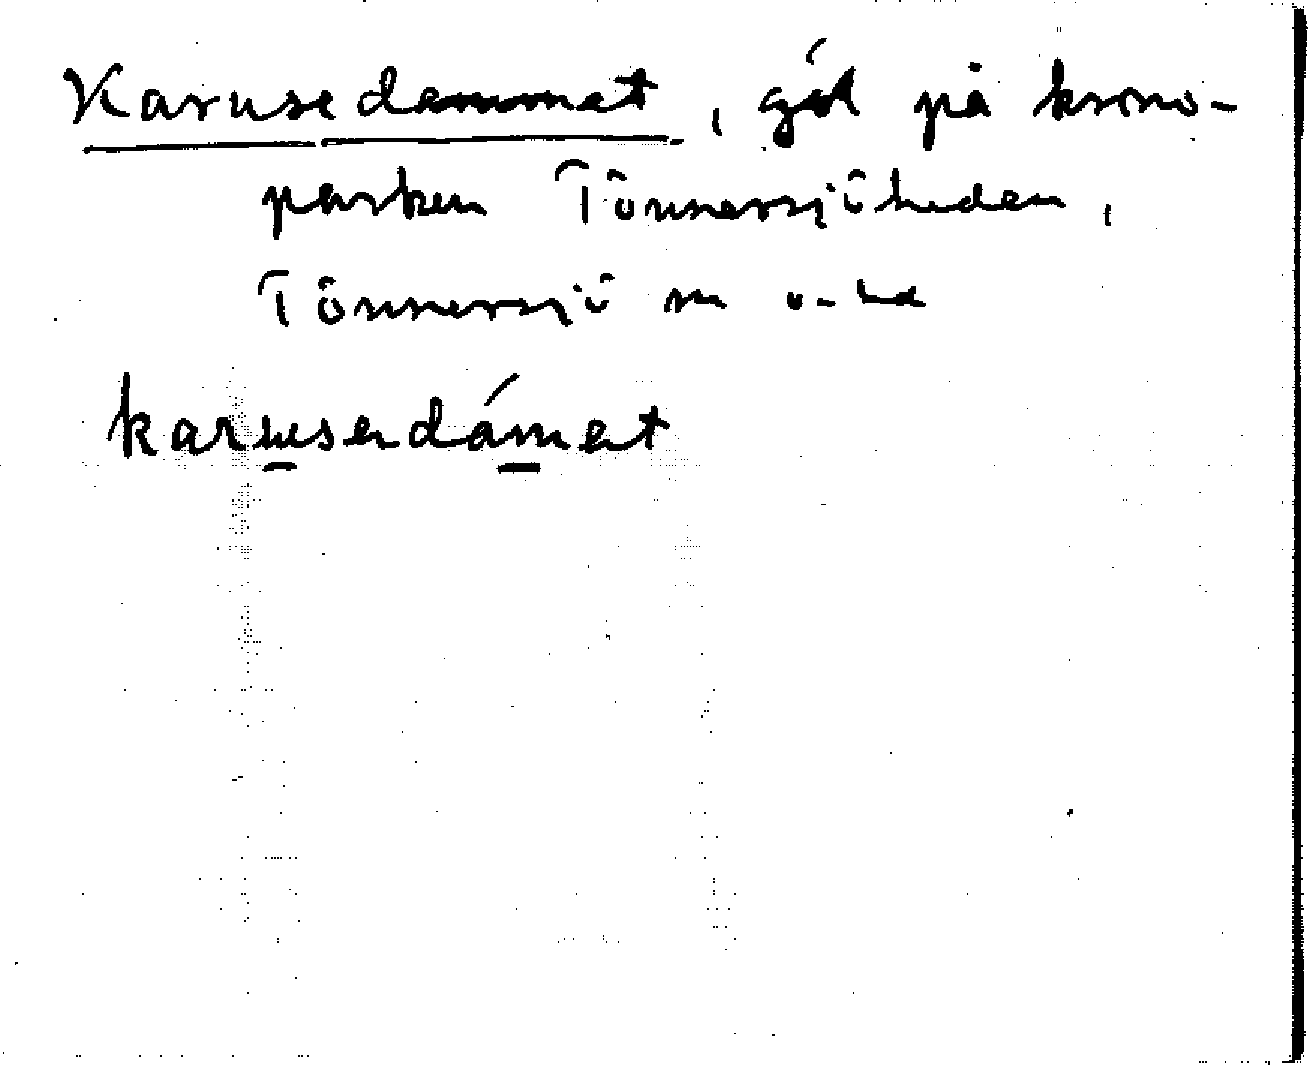 Karusedammet, göl på krono-
parken Tönnersjöheden,
Tönnersjö sn o. hd
karusedámet